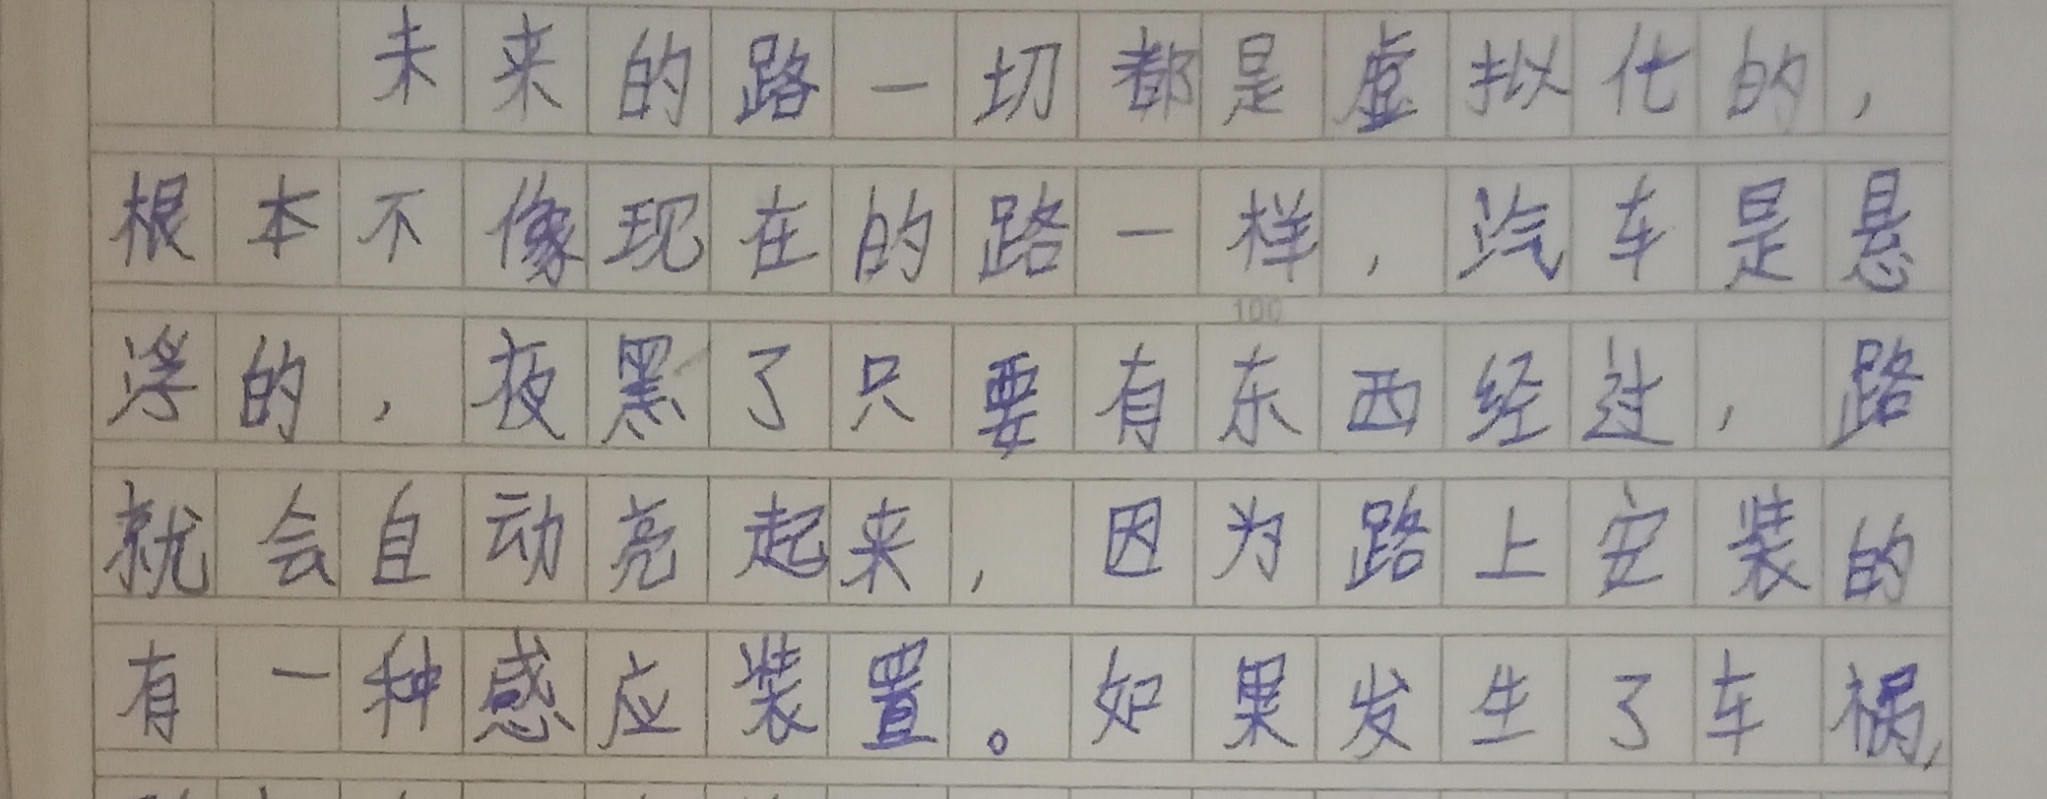 未来的路一切都是虚拟化的，
根本不像现在的路一样，汽车是悬
100
浮的，夜黑了只要有东西经过，路
就会自动亮起来，因为路上安装的
有一种感应装置。如果发生了车祸，